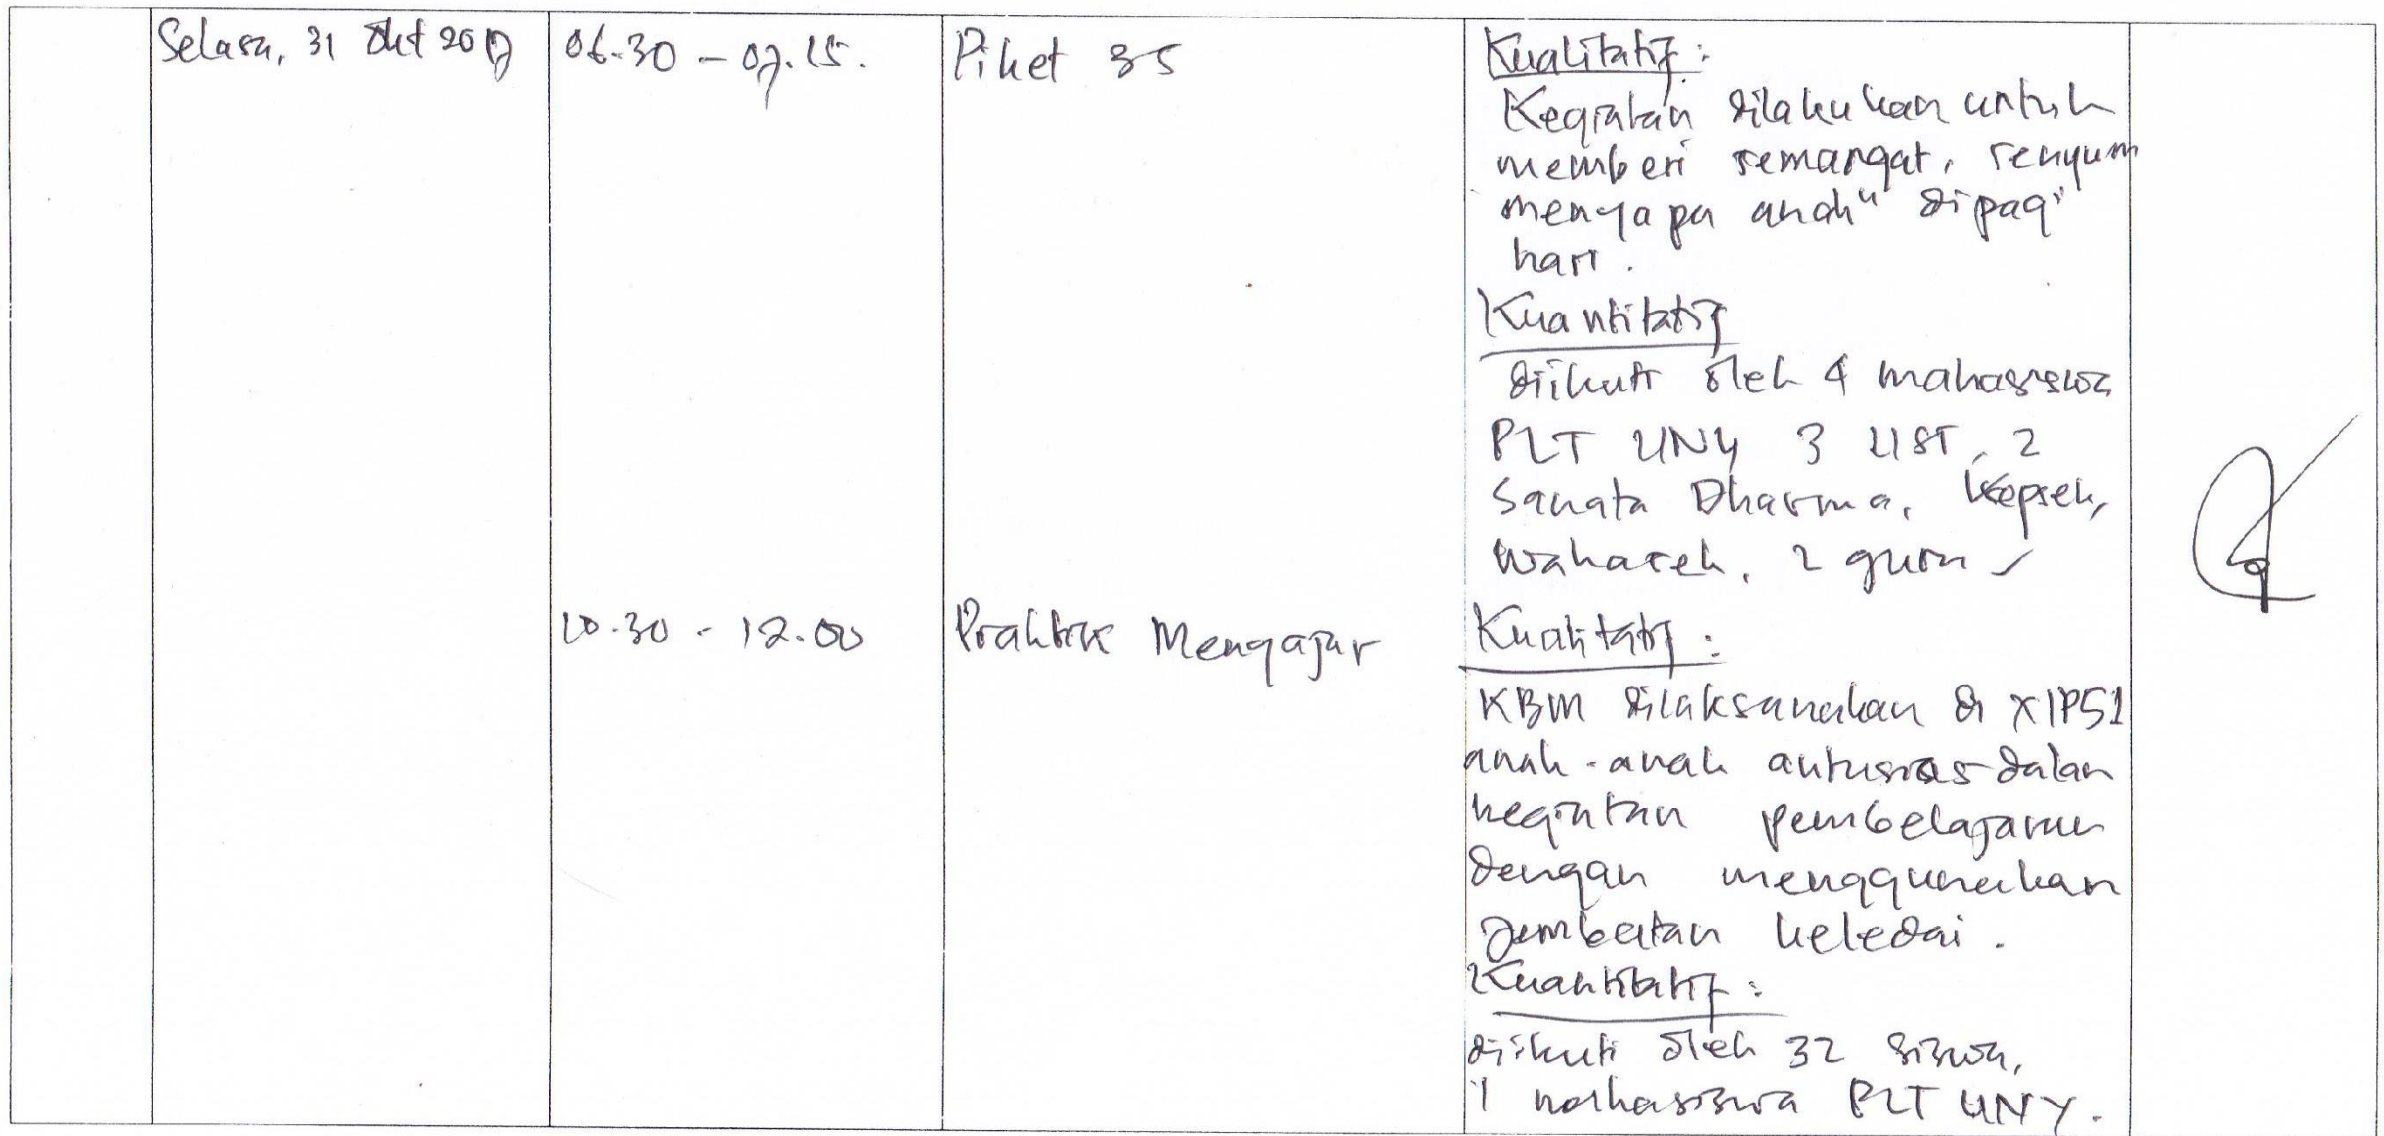 Selasa, 31 Okt 2017
06.30 - 07.15.
Piket 3S
Kualitatif :
Kegiatan dilakukan untuk
memberi semangat, senyum
menyapa anak" dipagi
hari.
Kuantitatif
diikuti oleh 4 mahasiswa
PLT UNY 3 UST, 2
Sanata Dharma, Kepsek,
Wakasek, 2 guru
10.30 - 12.00
Praktik Mengajar
Kualitatif :
KBM dilaksanakan di X IPS1
anak-anak antusias dalam
kegiatan pembelajaran
dengan menggunakan
jembatan keledai.
Kuantitatif :
diikuti oleh 32 siswa,
1 mahasiswa PLT UNY.